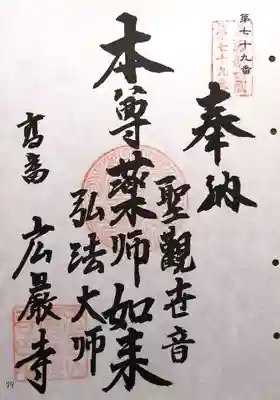 第七十九番
奉納
聖観世音
本尊薬師如来
弘法大師
高番
広厳寺
99